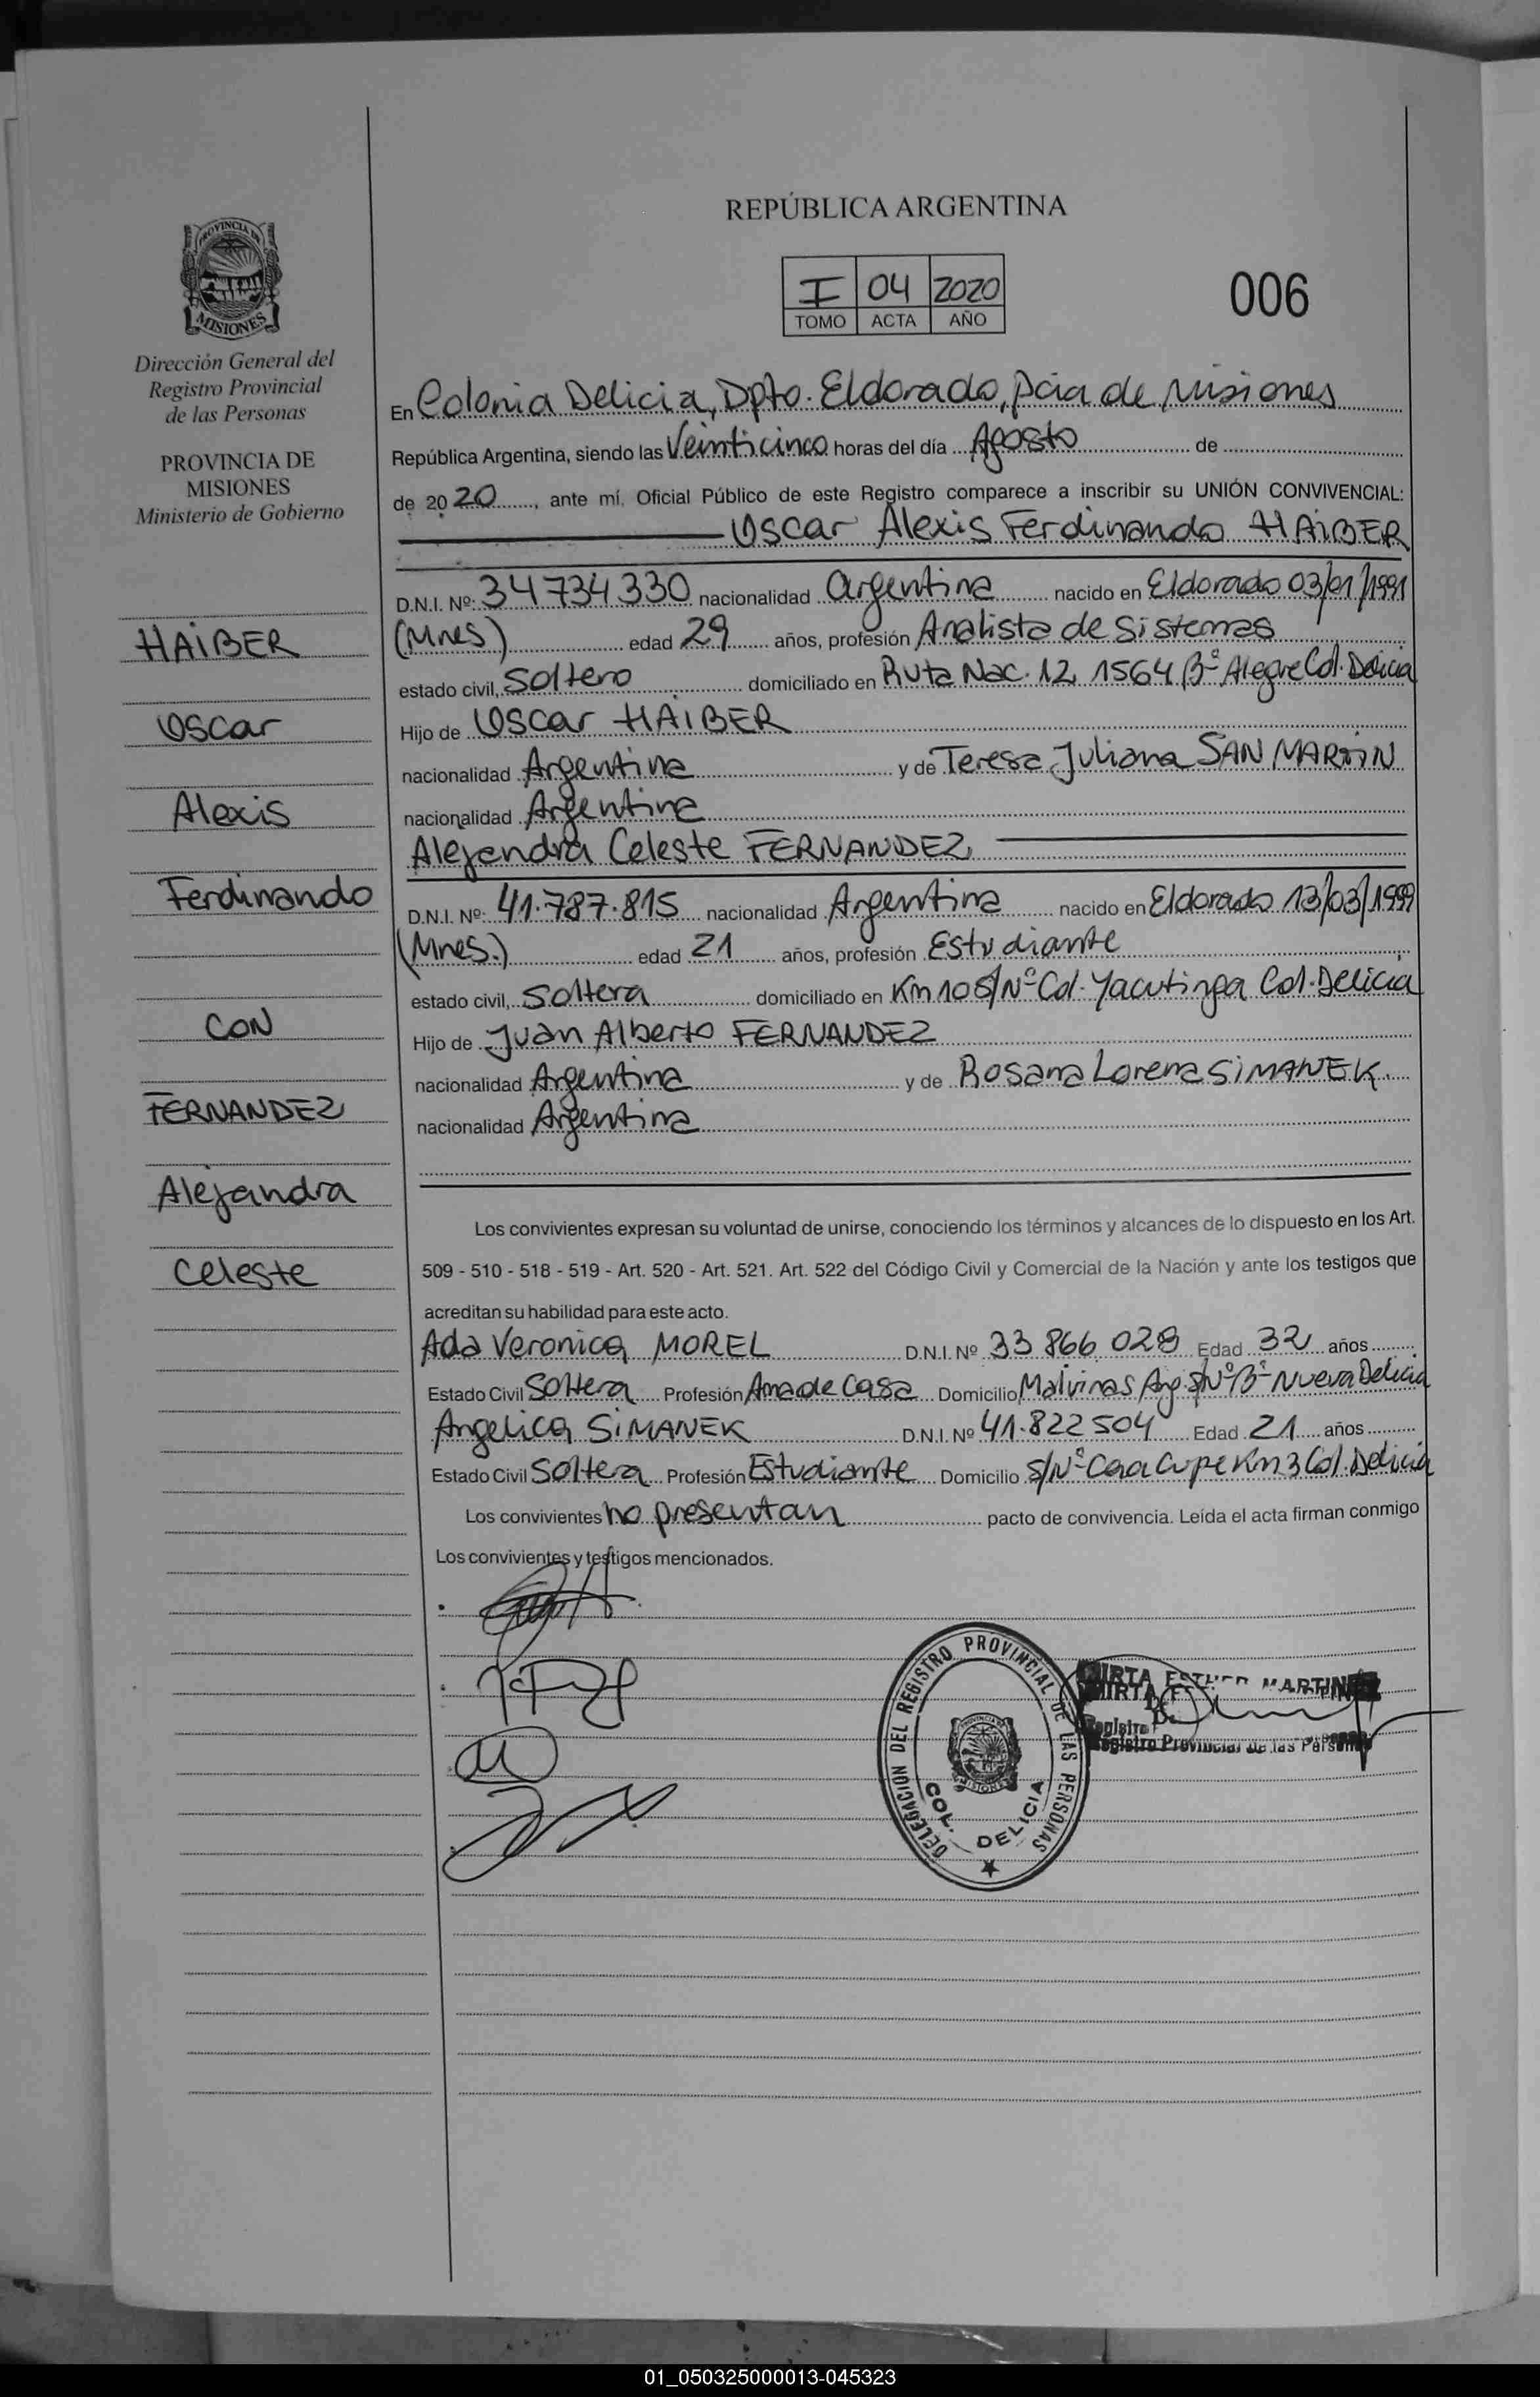 REPÚBLICA ARGENTINA
I 04 2020
TOMO ACTA AÑO
006
PROVINCIA DE
MISIONES
Dirección General del
Registro Provincial
de las Personas
PROVINCIA DE
MISIONES
Ministerio de Gobierno
HAIBER
Oscar
Alexis
Ferdinando
CON
FERNANDEZ
Alejandra
Celeste
En Colonia Delicia, Dpto. Eldorado, pcia de Misiones
República Argentina, siendo las Veinticinco horas del día Agosto de
de 20 20, ante mí, Oficial Público de este Registro comparece a inscribir su UNIÓN CONVIVENCIAL:
Oscar Alexis Ferdinando HAIBER
D.N.I. Nº: 34734330 nacionalidad Argentina nacido en Eldorado 03/01/1991
(Mnes) edad 29 años, profesión Analista de Sistemas
estado civil, Soltero domiciliado en Ruta Nac. 12 1564 Bº Alegre Col. Delicia
Hijo de Oscar HAIBER
nacionalidad Argentina y de Teresa Juliana SAN MARTIN
nacionalidad Argentina
Alejandra Celeste FERNANDEZ
D.N.I. Nº: 41.787.815 nacionalidad Argentina nacido en Eldorado 13/03/1999
(Mnes.) edad 21 años, profesión Estudiante
estado civil, Soltera domiciliado en Km 10 S/Nº Col. Yacutinga Col. Delicia
Hijo de Juan Alberto FERNANDEZ
nacionalidad Argentina y de Rosana Lorena SIMANEK
nacionalidad Argentina
Los convivientes expresan su voluntad de unirse, conociendo los términos y alcances de lo dispuesto en los Art.
509 - 510 - 518 - 519 - Art. 520 - Art. 521. Art. 522 del Código Civil y Comercial de la Nación y ante los testigos que
acreditan su habilidad para este acto.
Ada Veronica MOREL D.N.I. Nº 33 866 028 Edad 32 años
Estado Civil Soltera Profesión Ama de Casa Domicilio Malvinas Arg. S/Nº Bº Nueva Delicia
Angelica SIMANEK D.N.I. Nº 41.822 504 Edad 21 años
Estado Civil Soltera Profesión Estudiante Domicilio S/Nº Caa Cupe Km 3 Col. Delicia
Los convivientes no presentan pacto de convivencia. Leída el acta firman conmigo
Los convivientes y testigos mencionados.
DELEGACION DEL REGISTRO PROVINCIAL DE LAS PERSONAS
COL. DELICIA
MIRTA ESTHER MARTINEZ
Registro Provincial de las Personas
01_050325000013-045323